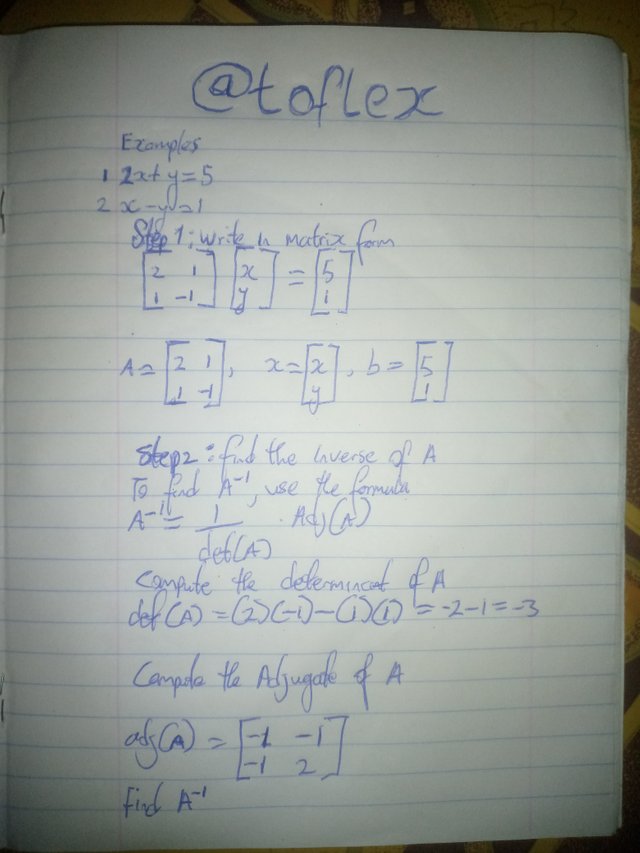 @toflex
Examples
1 2x+y=5
2 x-y=1
Step 1: write in matrix form
[2 1
1 -1] [x
y] = [5
1]
A = [2 1
1 -1], x = [x
y], b = [5
1]
Step 2: find the inverse of A
To find A⁻¹, use the formula
A⁻¹ = 1/det(A) · Adj(A)
Compute the determinant of A
det(A) = (2)(-1)-(1)(1) = -2-1=-3
Compute the Adjugate of A
adj(A) = [-1 -1
-1 2]
find A⁻¹